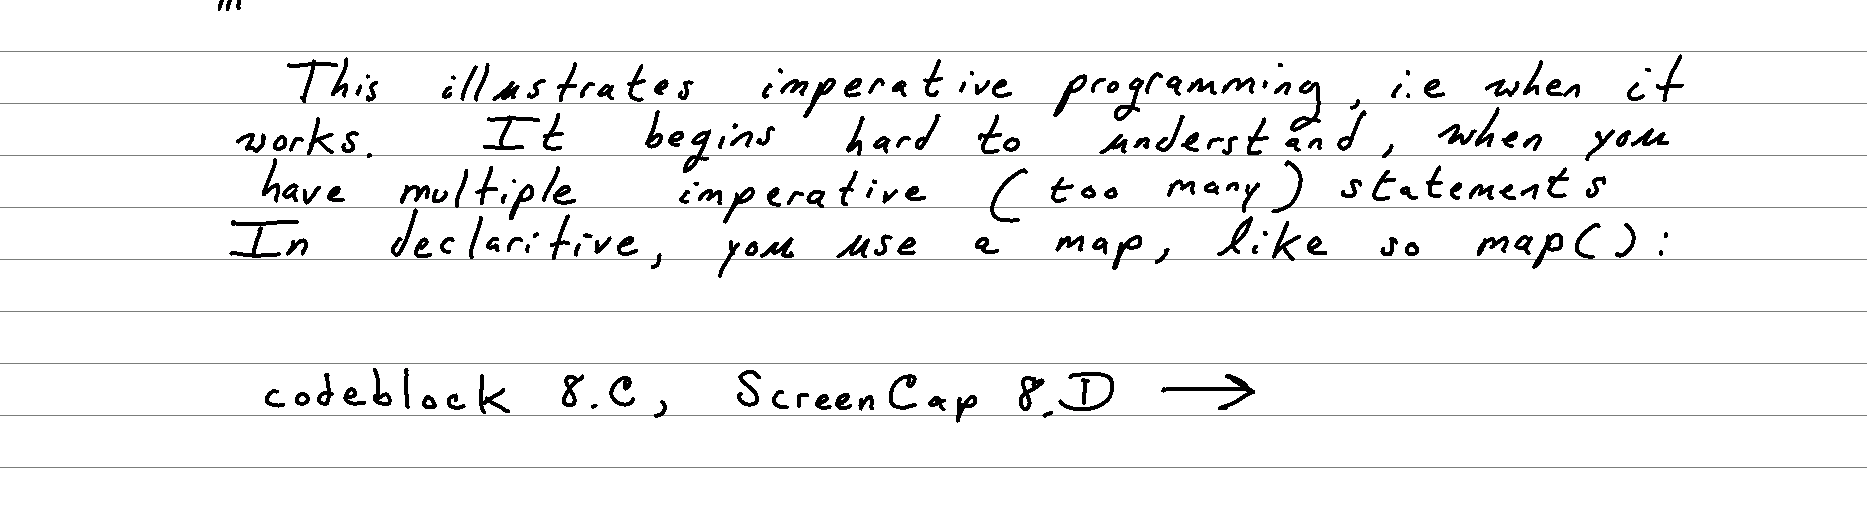 This illustrates imperative programming, i.e when it
works. It begins hard to understand, when you
have multiple imperative (too many) statements
In declaritive, you use a map, like so map():
codeblock 8.C, ScreenCap 8.D →